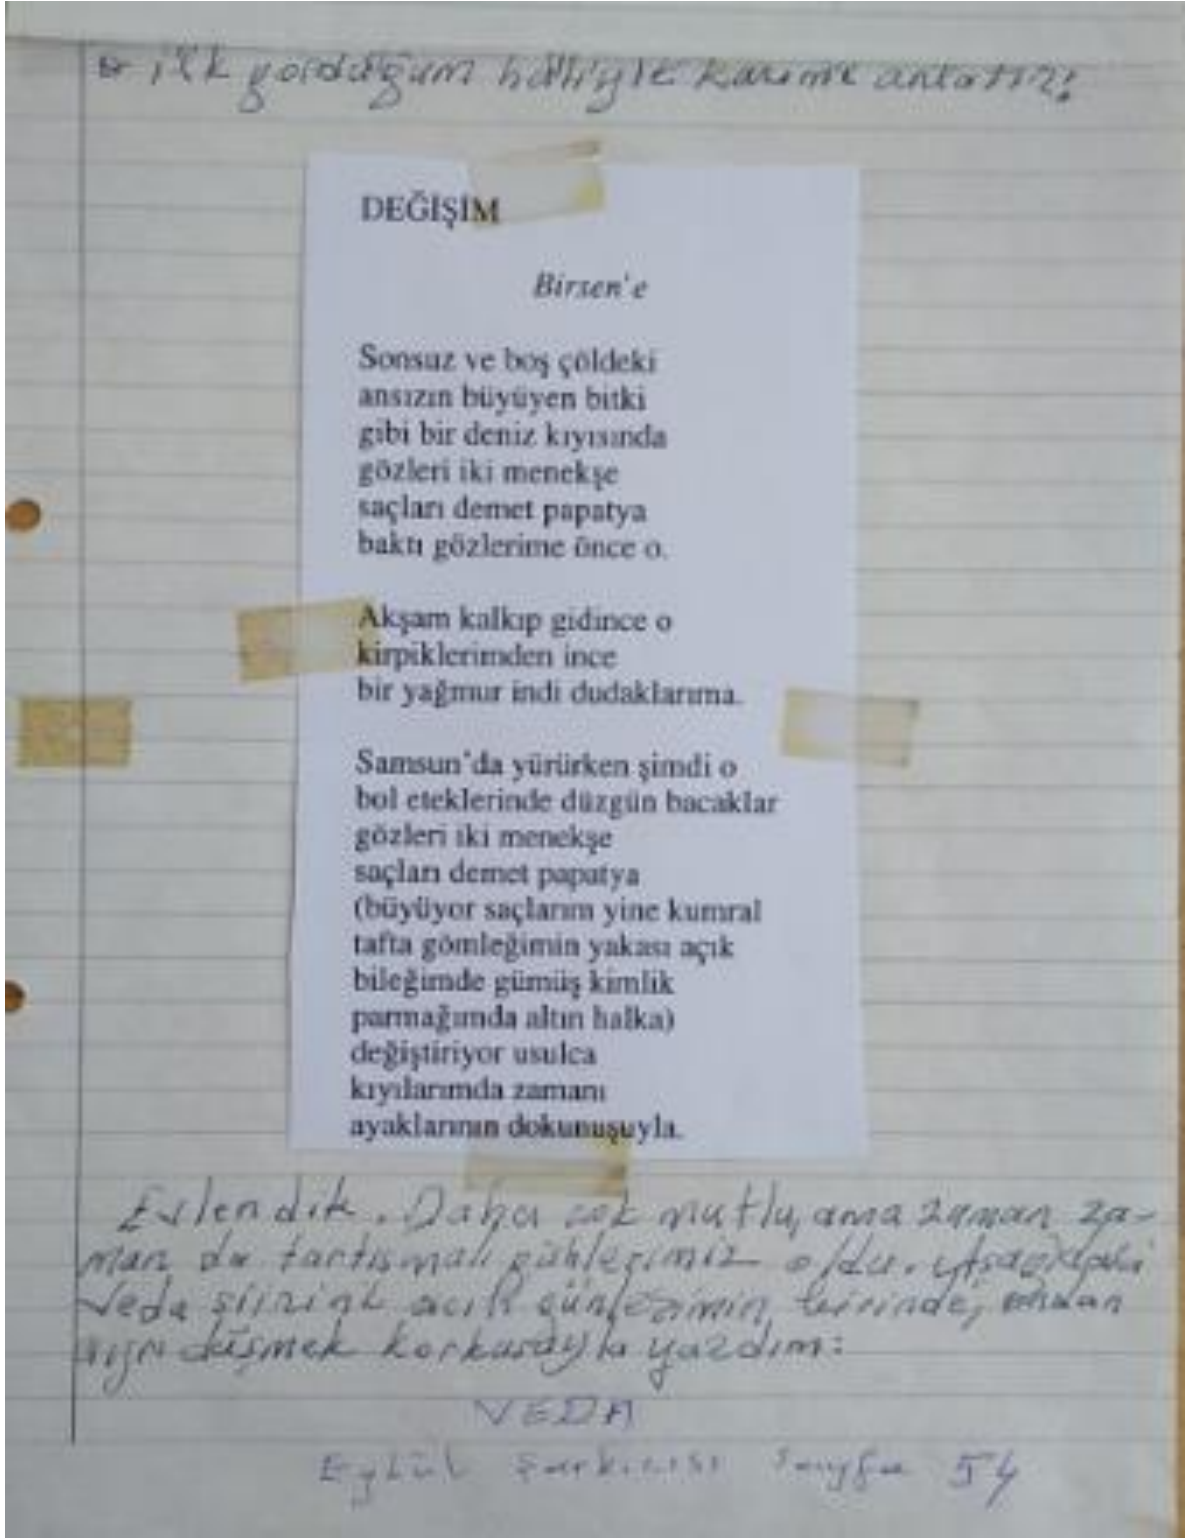 ilk haliyle karımı anlatır:
DEĞİŞİM
Birsen'e
Sonsuz ve boş çöldeki
ansızın büyüyen bitki
gibi bir deniz kıyısında
gözleri iki menekşe
saçları demet papatya
baktı gözlerime önce o.
Akşam kalkıp gidince o
kirpiklerimden ince
bir yağmur indi dudaklarıma.
Samsun'da yürürken şimdi o
bol eteklerinde düzgün bacaklar
gözleri iki menekşe
saçları demet papatya
(büyüyor saçlarım yine kumral
tafta gömleğimin yakası açık
bileğimde gümüş kimlik
parmağımda altın halka)
değiştiriyor usulca
kıyılarımda zamanı
ayaklarının dokunuşuyla.
Evlendik. Daha çok mutlu, ama zaman za-
man da tartışmalı günlerimiz oldu. Aşağıdaki
Veda şiirini acılı günlerimin birinde, ondan
ayrı düşmek korkusuyla yazdım:
VEDA
Eylül Şarkıcısı Sayfa 54